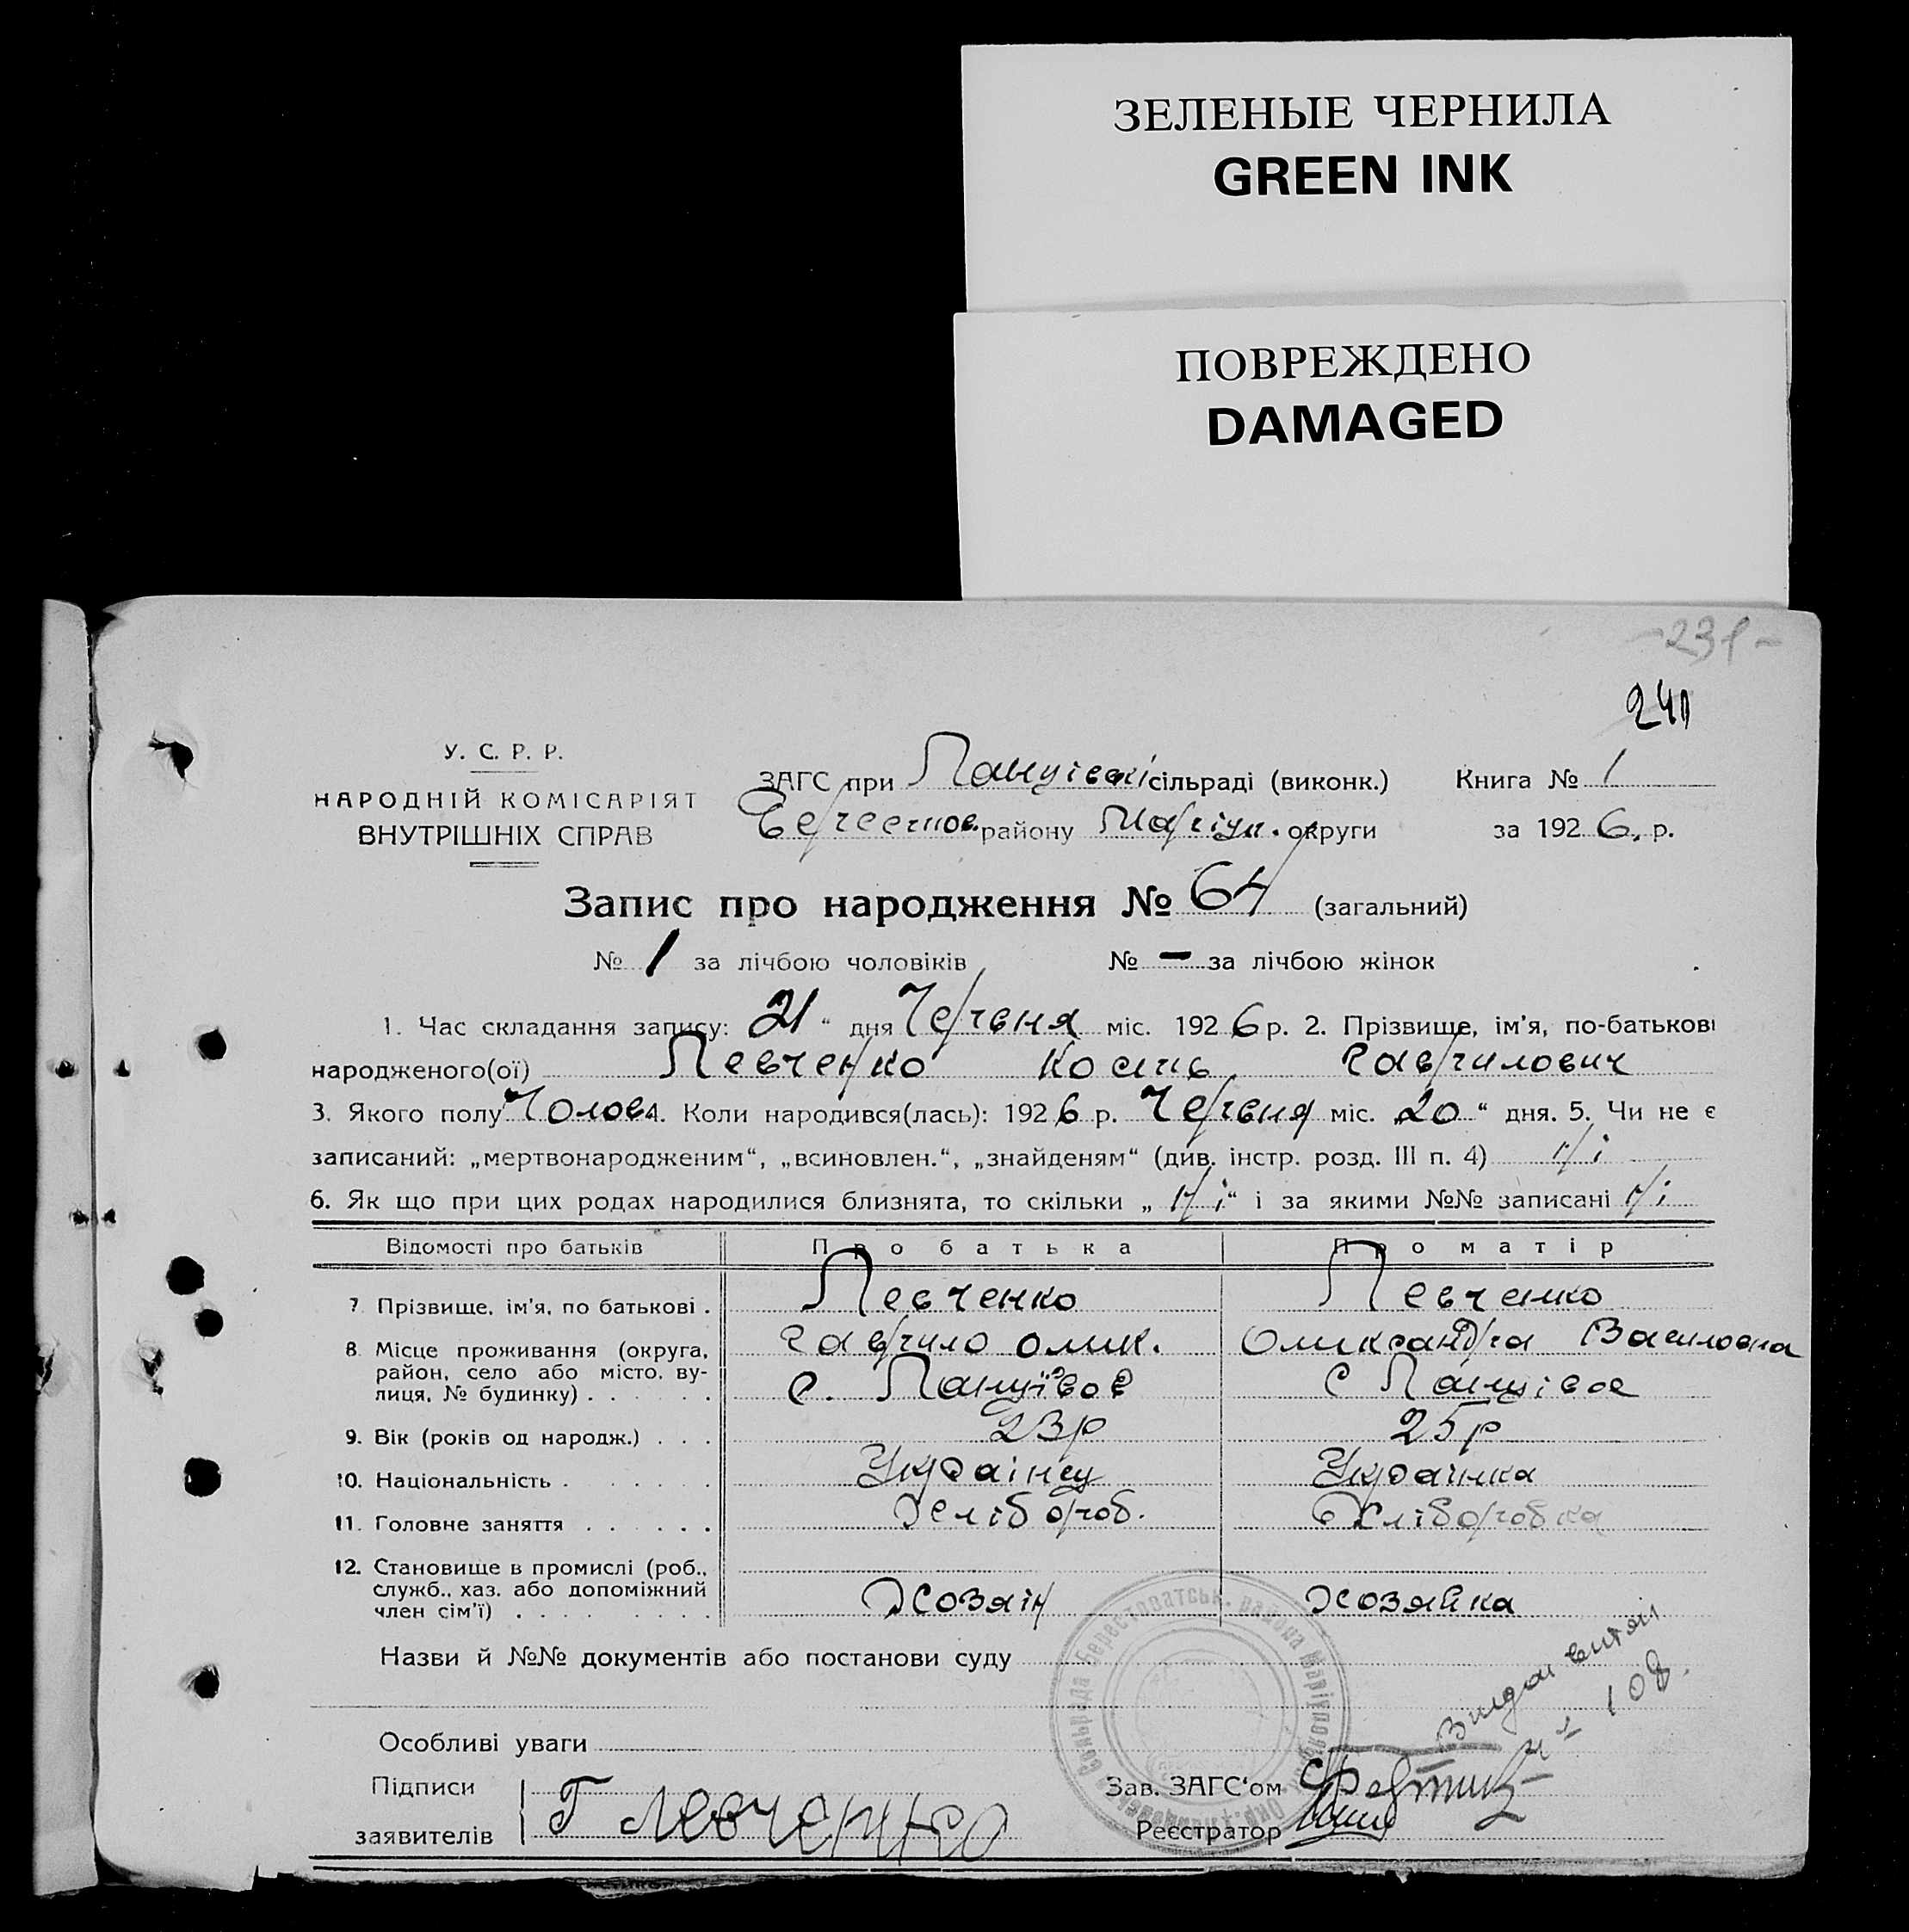 ЗЕЛЕНЫЕ ЧЕРНИЛА
GREEN INK
ПОВРЕЖДЕНО
DAMAGED
-231-
240
У. С. Р. Р.
НАРОДНІЙ КОМІСАРІЯТ
ВНУТРІШНІХ СПРАВ
ЗАГС при сільраді (виконк.) Книга № 1
району Маріуп. округи за 1926. р.
Запис про народження № 64 (загальний)
№ 1 за лічбою чоловіків № — за лічбою жінок
1. Час складання запису: 21 " дня Червня міс. 1926 р. 2. Прізвище, ім'я, по-батькові
народженого(ої) Левченко Кость Гаврилович
3. Якого полу Чолов. 4. Коли народився(лась): 1926 р. Червня міс. 20 " дня. 5. Чи не є
записаний: „мертвонародженим“, „всиновлен.“, „знайденям“ (див. інстр. розд. III п. 4) ні
6. Як що при цих родах народилися близнята, то скільки „ ні “ і за якими №№ записані ні
Відомості про батьків Про батька Про матір
7. Прізвище, ім'я, по батькові . Левченко Левченко
8. Місце проживання (округа, Гаврило Олик. Олександра Василовна
район, село або місто, ву-
лиця, № будинку) . . . . с. с
9. Вік (років од народж.) . . . 23р 25р
10. Національність . . . . . . Українец Украінка
11. Головне заняття . . . . . . Хлібороб. Хліборобка
12. Становище в промислі (роб.,
служб., хаз. або допоміжний
член сім'ї) . . . . . . . . . Хозяін Хозяйка
Назви й №№ документів або постанови суду
Особливі уваги
Видан витяг
108.
Підписи
заявителів Г Левченко
Зав. ЗАГС'ом
Реєстратор
Берестоватськ. району Маріупол